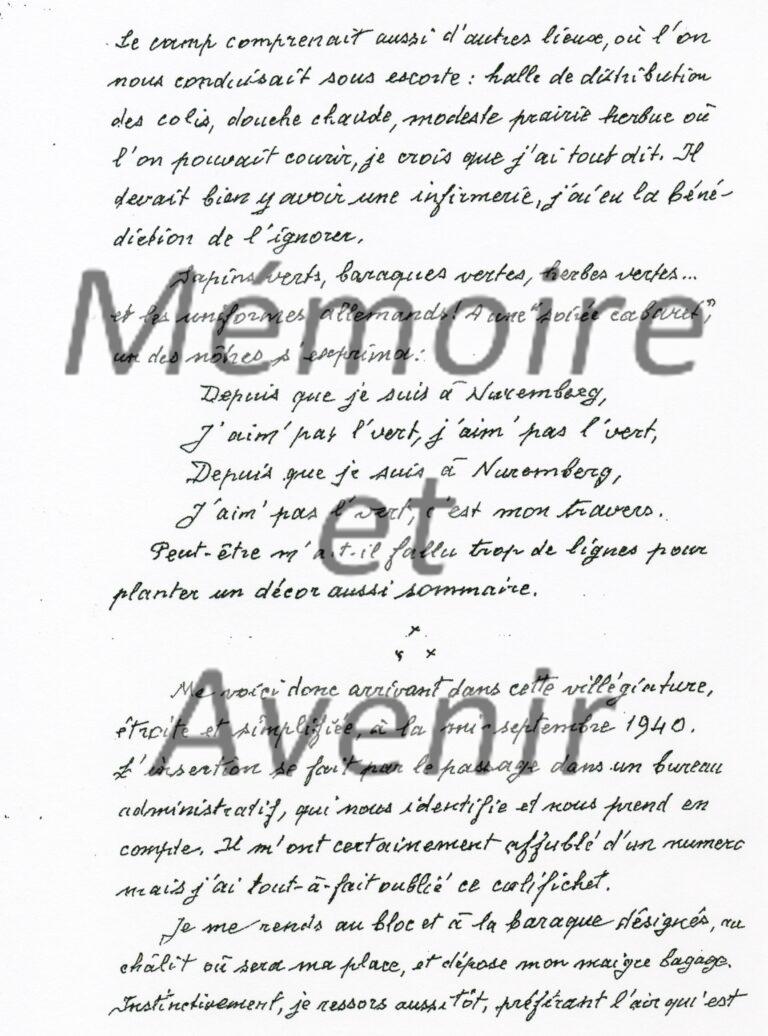 Le camp comprenait aussi d'autres lieux, où l'on
nous conduisait sous escorte : halle de distribution
des colis, douche chaude, modeste prairie herbue où
l'on pouvait courir, je crois que j'ai tout dit. Il
devait bien y avoir une infirmerie, j'ai eu la béné-
diction de l'ignorer.
Sapins verts, baraques vertes, herbes vertes...
et les uniformes allemands! A une "soirée cabaret",
un des nôtres s'exprima:
Depuis que je suis à Nuremberg,
J'aim' pas l'vert, j'aim' pas l'vert,
Depuis que je suis à Nuremberg,
J'aim' pas l'vert, c'est mon travers.
Peut-être m'a-t-il fallu trop de lignes pour
planter un décor aussi sommaire.
Me voici donc arrivant dans cette villégiature,
étroite et simplifiée, à la mi-septembre 1940.
L'insertion se fait par le passage dans un bureau
administratif, qui nous identifie et nous prend en
compte. Il m'ont certainement affublé d'un numero
mais j'ai tout-à-fait oublié ce colifichet.
Je me rends au bloc et à la baraque désignés, au
châlit où sera ma place, et dépose mon maigre bagage.
Instinctivement, je ressors aussitôt, préférant l'air qu'est
Mémoire
et
Avenir